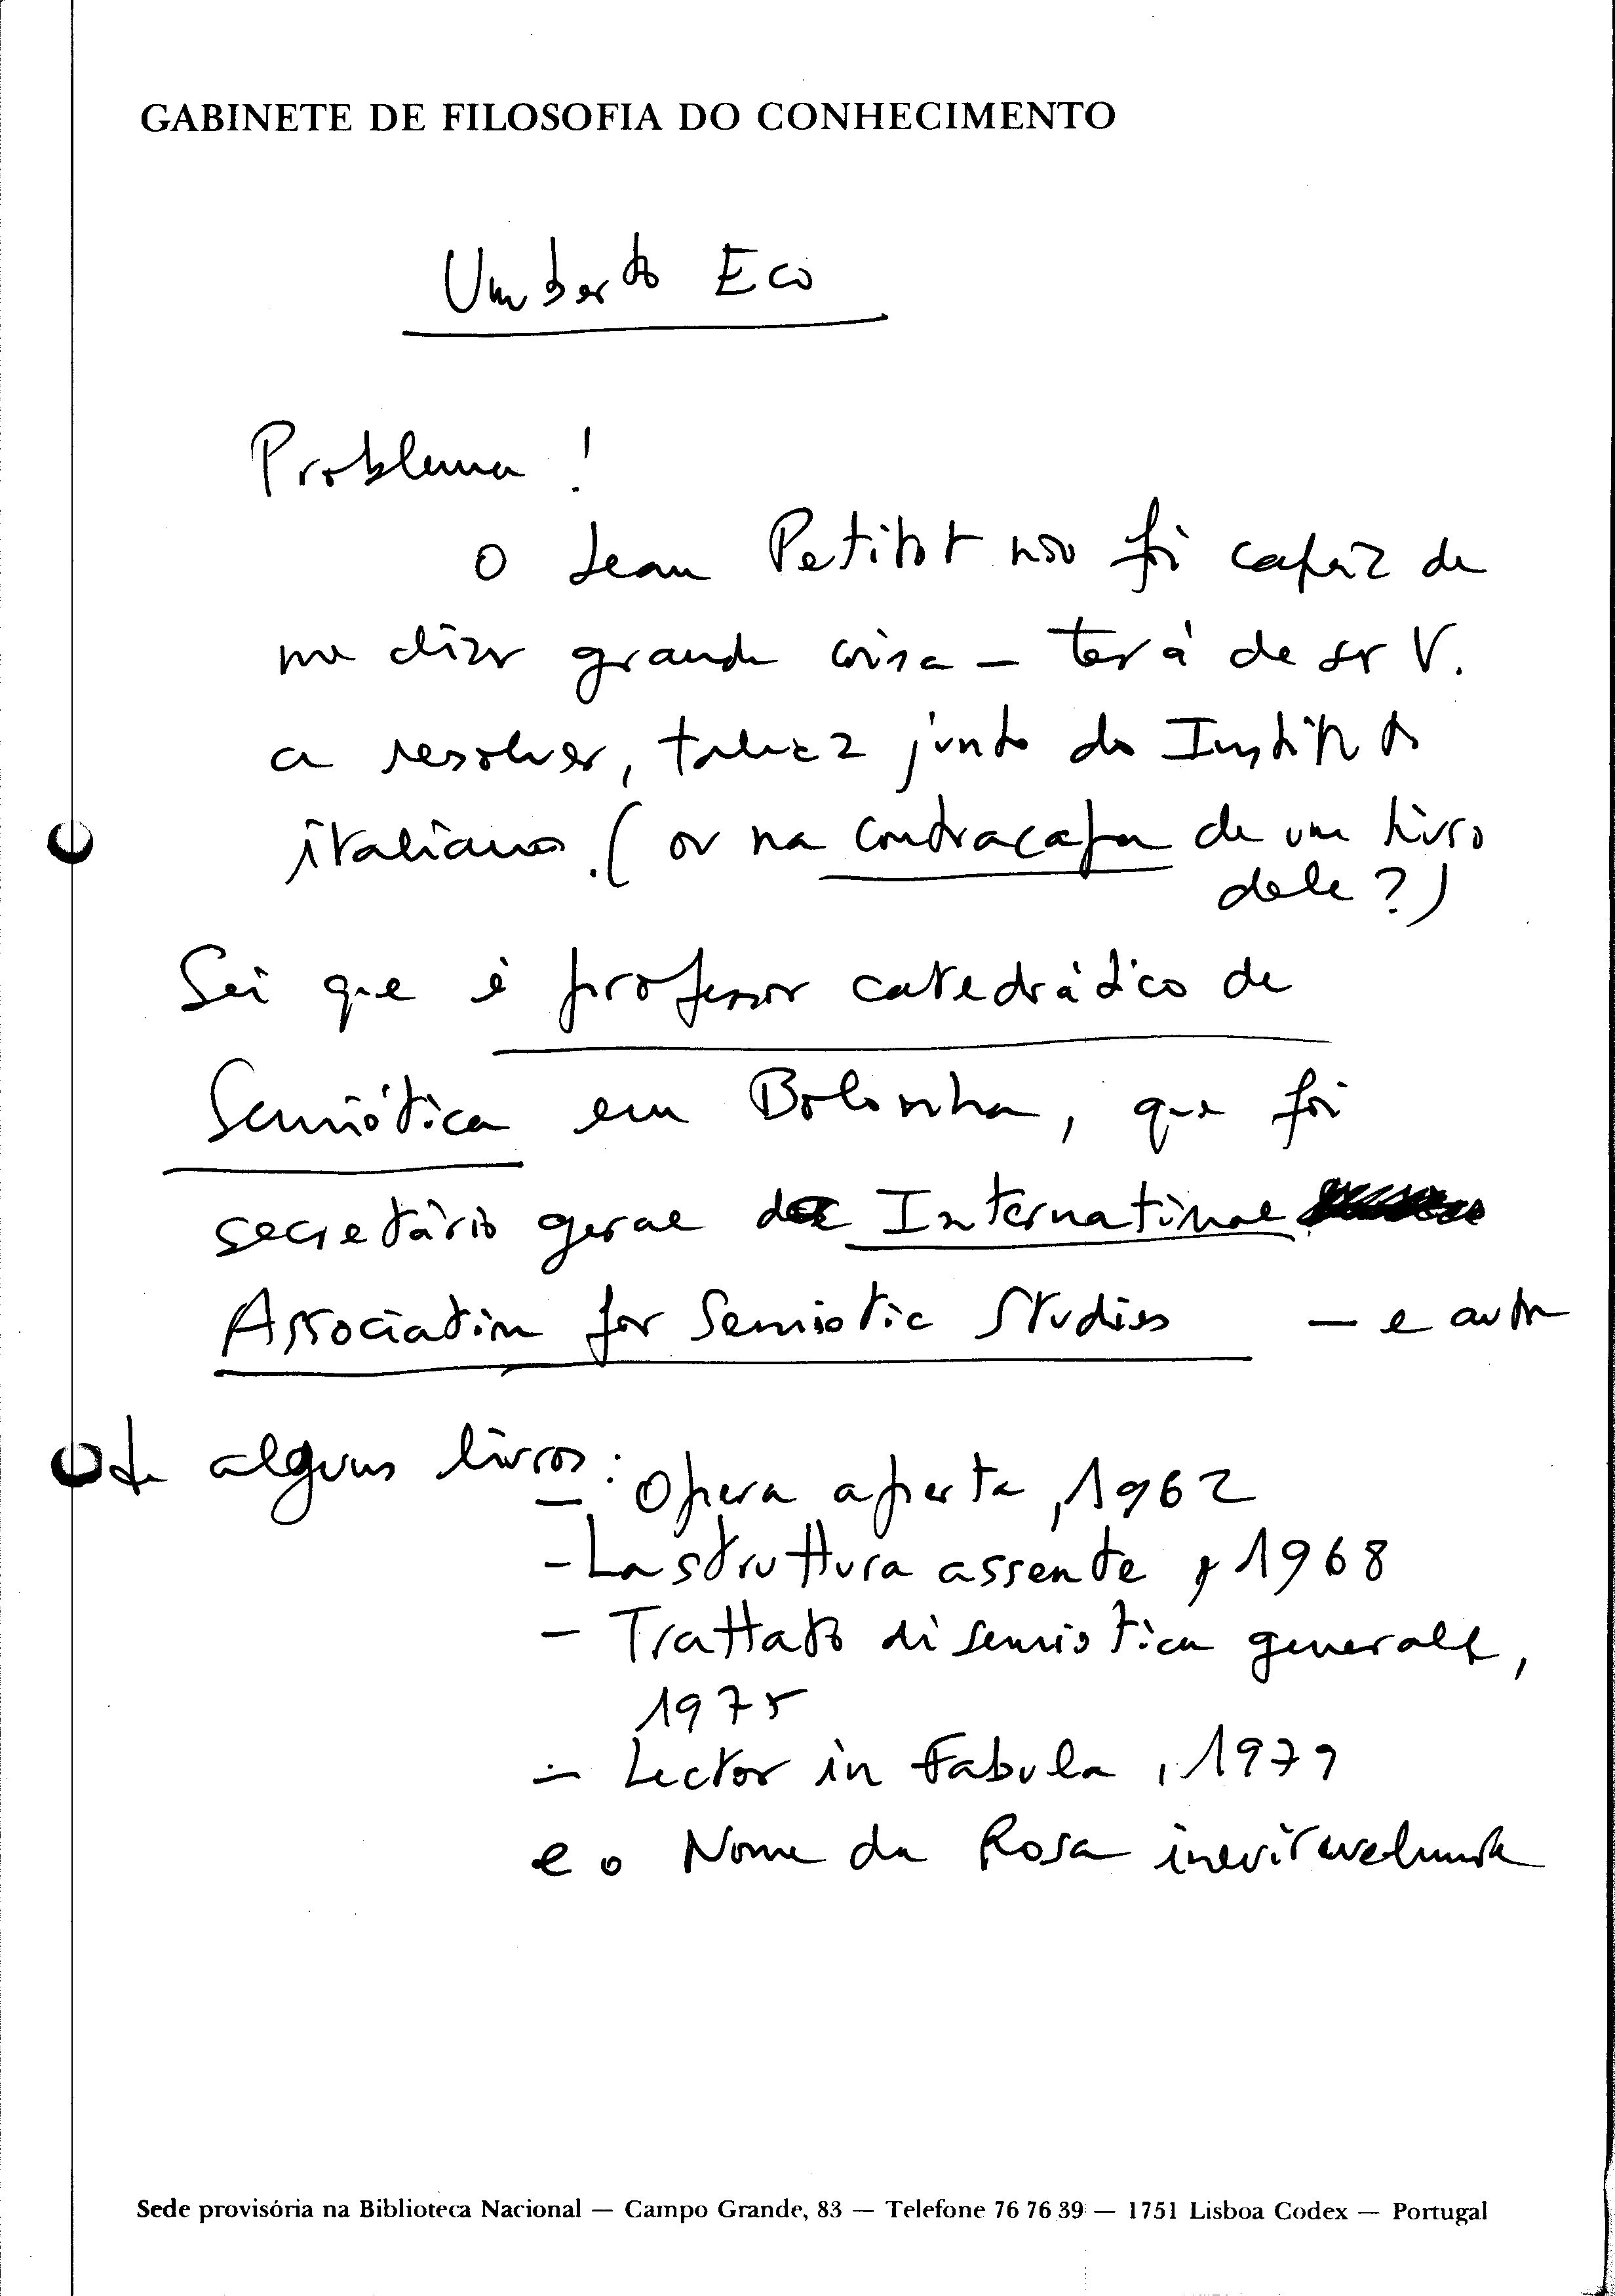 GABINETE DE FILOSOFIA DO CONHECIMENTO
Umberto Eco
Problema !
O Jean Petitot não foi capaz de
me dizer grande coisa — terá de ser V.
a resolver, talvez junto do Instituto
italiano. (ou na contracapa de um livro
dele ?)
Sei que é professor catedrático de
Semiótica em Bolonha, que foi
secretário geral da International
Association for Semiotic Studies — e autor
de alguns livros :
— Opera aperta, 1962
- La struttura assente, 1968
- Trattato di semiotica generale,
1975
- Lector in Fabula, 1979
e o Nome da Rosa inevitavelmente
Sede provisória na Biblioteca Nacional — Campo Grande, 83 — Telefone 76 76 39 — 1751 Lisboa Codex — Portugal